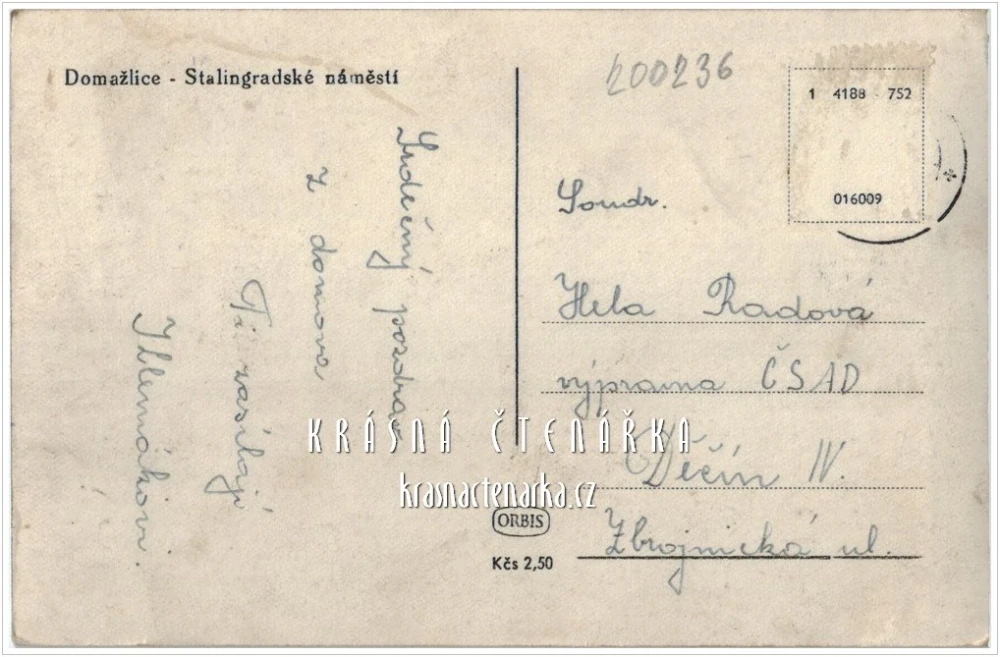 Domažlice - Stalingradské náměstí
200236
1 4188 - 752
016009
Srdečný pozdrav
z domova
Ti zasílají
Soudr.
Hela Radová
výpravna ČSAD
Děčín IV.
Zbrojnická ul.
KRÁSNÁ ČTENÁŘKA
krasnactenarka.cz
ORBIS
Kčs 2,50